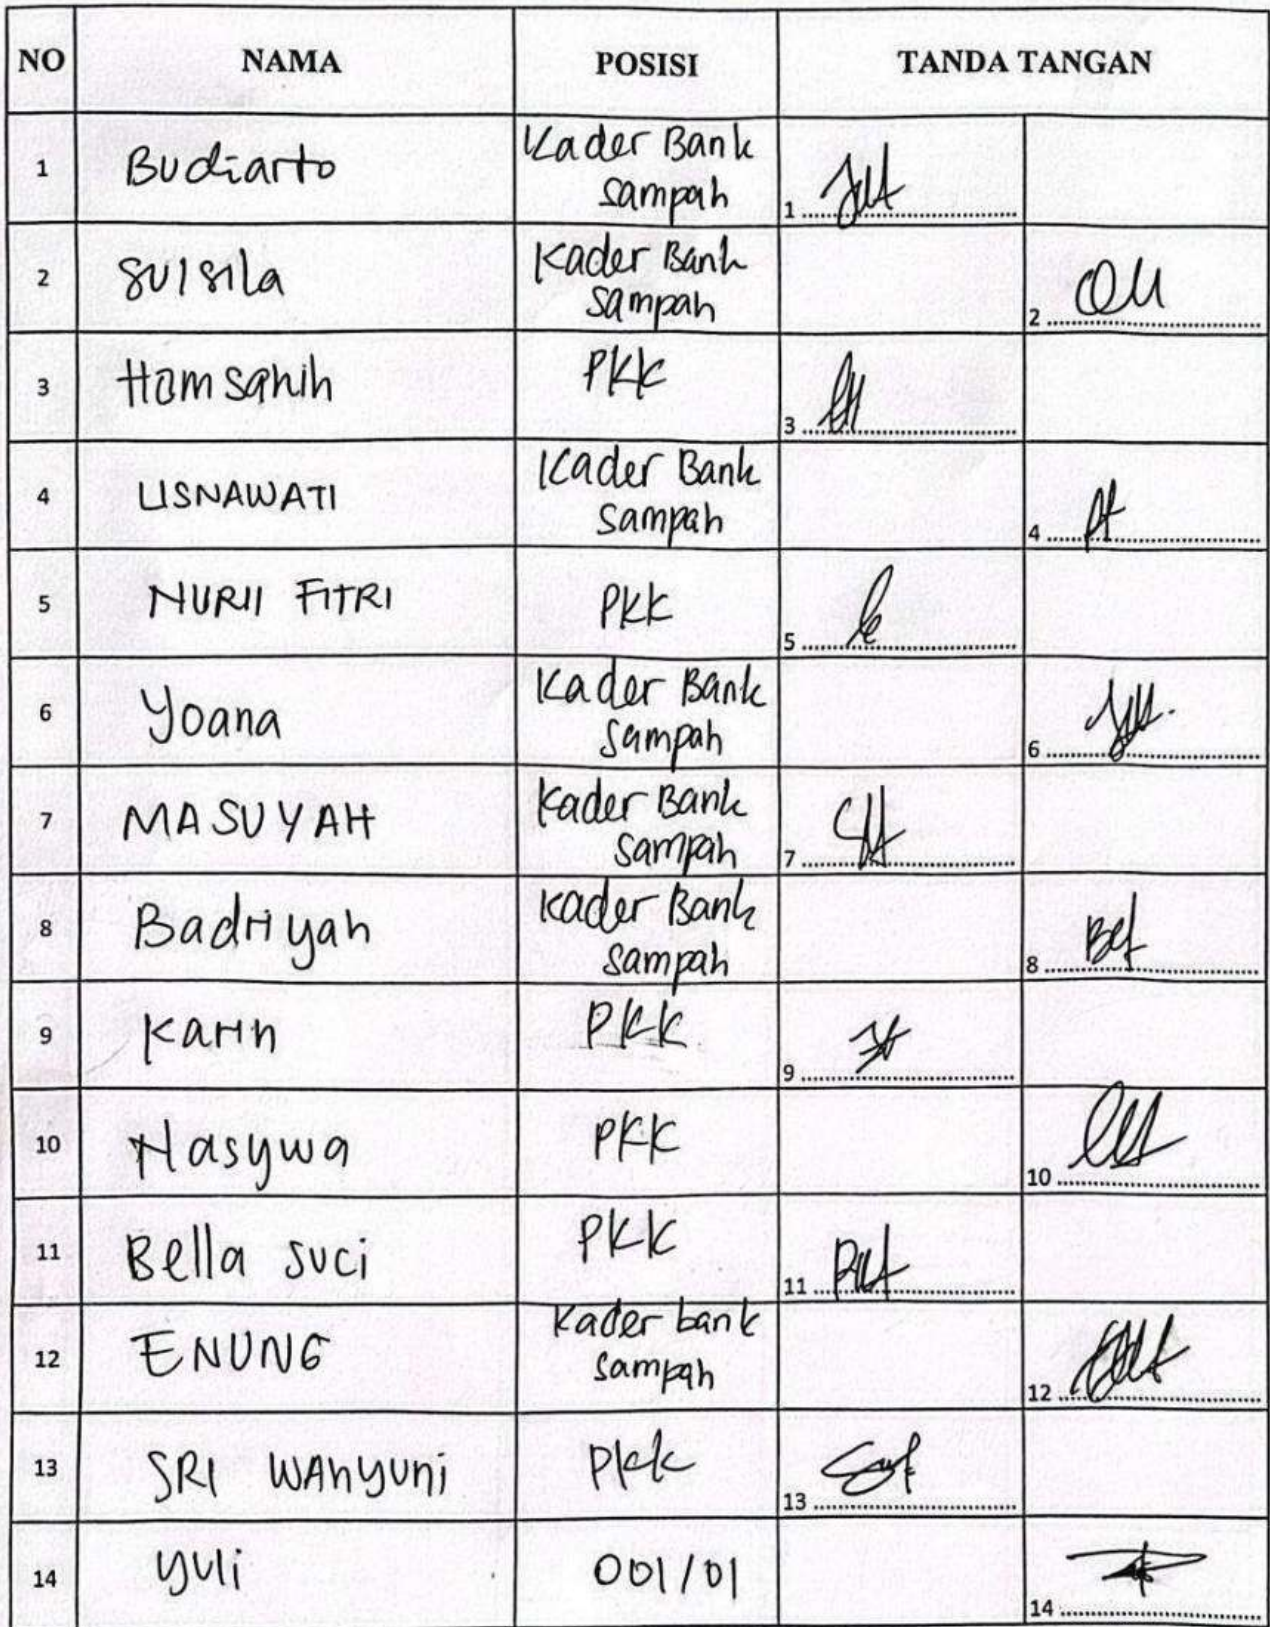 NO NAMA POSISI TANDA TANGAN
1 Budiarto Kader Bank
sampah 1
2 SUISIla Kader Bank
sampah 2
3 Hamsanih PKK 3
4 LISNAWATI Kader Bank
sampah 4
5 NURII FITRI PKK 5
6 Yoana Kader Bank
sampah 6
7 MASUYAH Kader Bank
sampah 7
8 Badriyah Kader Bank
sampah 8
9 Karin PKK 9
10 Nasywa PKK 10
11 Bella suci PKK 11
12 ENUNG Kader bank
sampah 12
13 SRI WAHYUNI PKK 13
14 yuli 001/01 14